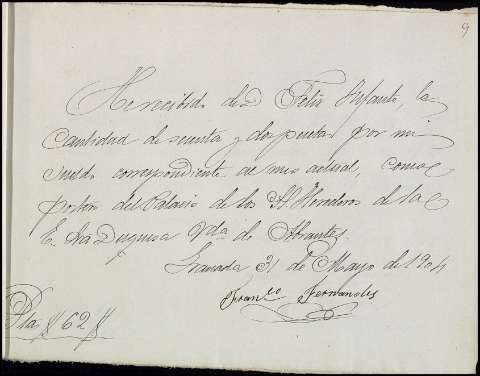 9
He recibido de D Felix Infante, la
cantidad de sesenta y dos pesetas por mi
sueldo correspondiente al mes actual, como
porton del Palacio de los Sres Herederos de la
E. Sra Duquesa Vda de Abrantes.
Granada 31 de Mayo de 1904
Franco Fernandes
Ptas # 62 #